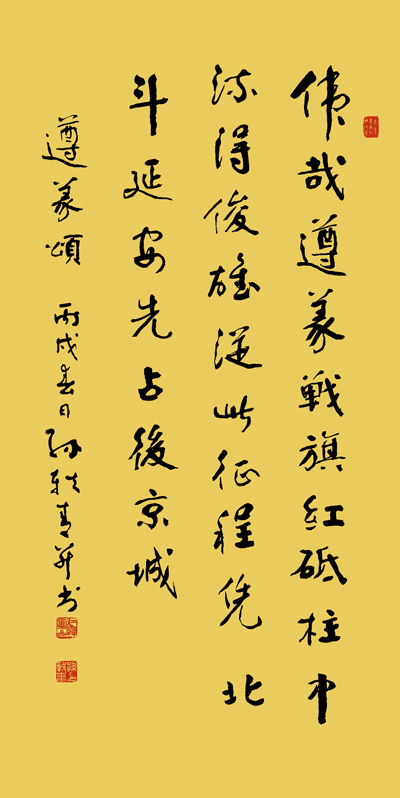 偉哉遵義戰旗紅砥柱中
流得俊雄從此征程凭北
斗延安先占後京城
遵義頌 丙戌春日孫軼青并书